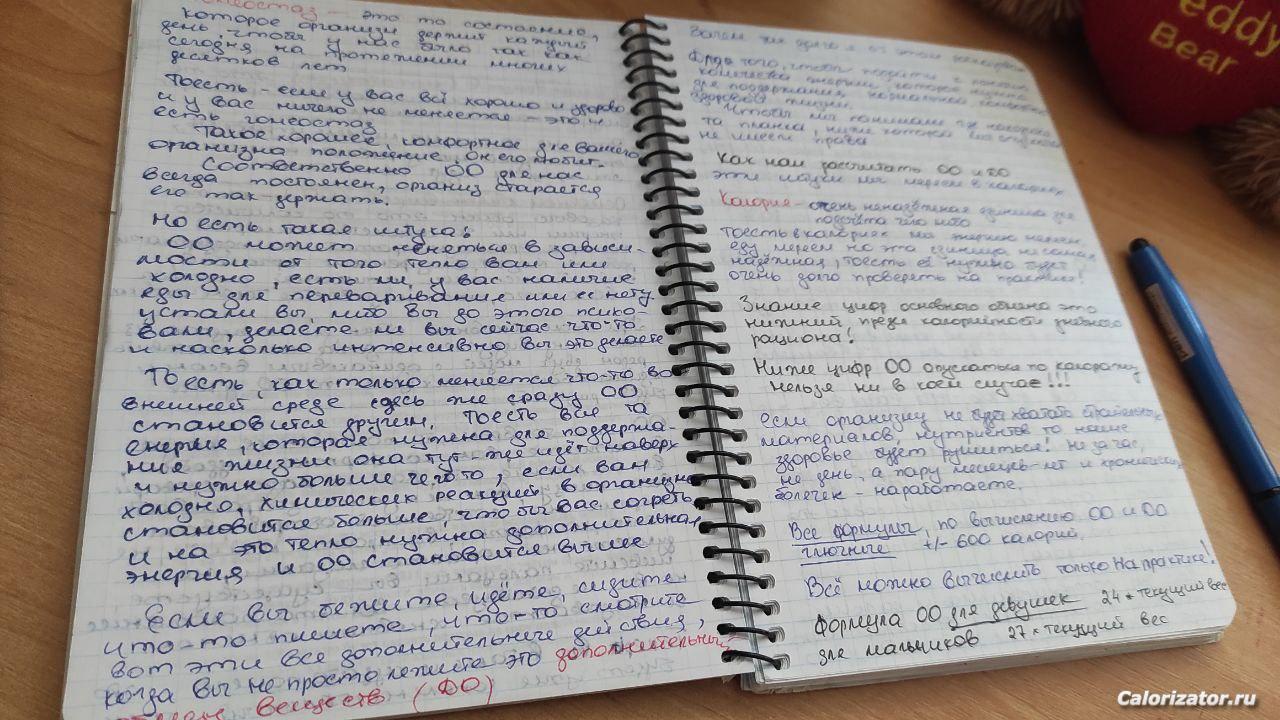 гомеостаз - это то состояние,
которое организм держит каждый
день, чтобы у нас было так как
сегодня на протяжении многих
десятков лет
Тоесть - если у вас всё хорошо и здорово
и у вас ничего не меняется - это и
есть гомеостаз
Такое хорошее, комфортное для вашего
организма положение, он его любит.
Соответственно ОО для нас
всегда постоянен, организм старается
его так держать.
Но есть такая штука:
ОО может меняться в зависи-
мости от того тепло вам или
холодно, есть ли у вас наличие
еды для переваривания или ее нету
устали вы, либо вы до этого психо-
вали, делаете ли вы сейчас что-то
и насколько интенсивно вы это делаете
То есть, как только меняется что-то во
внешней среде здесь же сразу ОО
становится другим, тоесть вся та
енергия, которая нужна для поддержа-
ния жизни она тут же идёт наверх
и нужно больше чего-то, если вам
холодно, химических реакций в организме
становится больше, чтобы вас согреть
и на это тепло нужна дополнительная
энергия и ОО становится выше
Если вы бежите, идёте, сидите
что-то пишете, что-то смотрите
вот эти все дополнительные действия,
когда вы не просто лежите это дополнительный
обмен веществ (ДО)
Зачем так долго я об этом
того, чтобы подойти к
количества энергии, которое нужно
для поддержания нормальной
здоровой жизни.
Чтобы мы понимали где находится
та планка, ниже которой
не имеем права
Как нам рассчитать ОО и ДО
эти штуки мы меряем в калориях
Калория - очень ненадёжная единица для
подсчёта чего либо
тоесть в калориях мы энергию меряем,
еду меряем но эта единица не самая
надёжная, тоесть её нужно будет
очень долго проверять на практике!
Знание цифр основного обмена это
нижний предел калорийности дневного
рациона!
Ниже цифр ОО опускаться по калоражу
нельзя ни в коем случае!!!
если организму не будет хватать строительных
материалов, нутриентов то наше
здоровье будет рушиться! Не за час,
не день, а пару месяцев-лет и хронических
болячек - наработаете.
Все формулы, по вычислению ОО и ДО
глючные +/- 600 калорий.
Всё можно вычислить только на практике!
Формула ОО для девушек 24 * текущий вес
для мальчиков 27 * текущий вес
eddy
Bear
Calorizator.ru